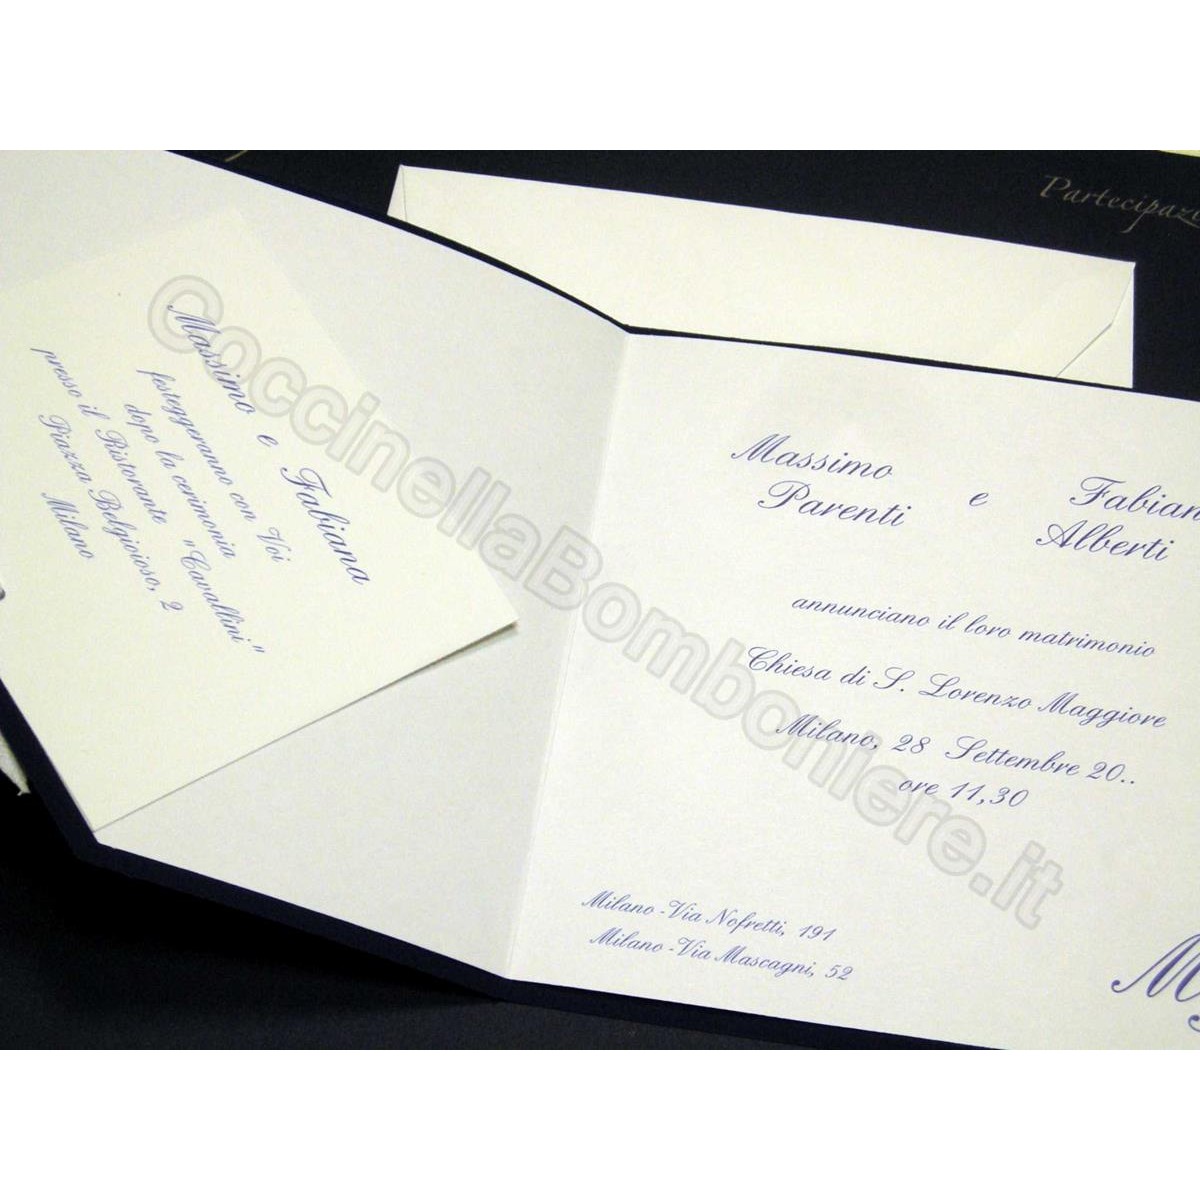 Partecipaz
Massimo e Fabiana
festeggeranno con Voi
dopo la cerimonia
presso il Ristorante "Cavallini"
Piazza Belgioioso, 2
Milano
Massimo Parenti e Fabian Alberti
annunciano il loro matrimonio
Chiesa di S. Lorenzo Maggiore
Milano, 28 Settembre 20..
ore 11,30
Milano - Via Nofretti, 191
Milano - Via Mascagni, 52
CoccinellaBomboniere.it